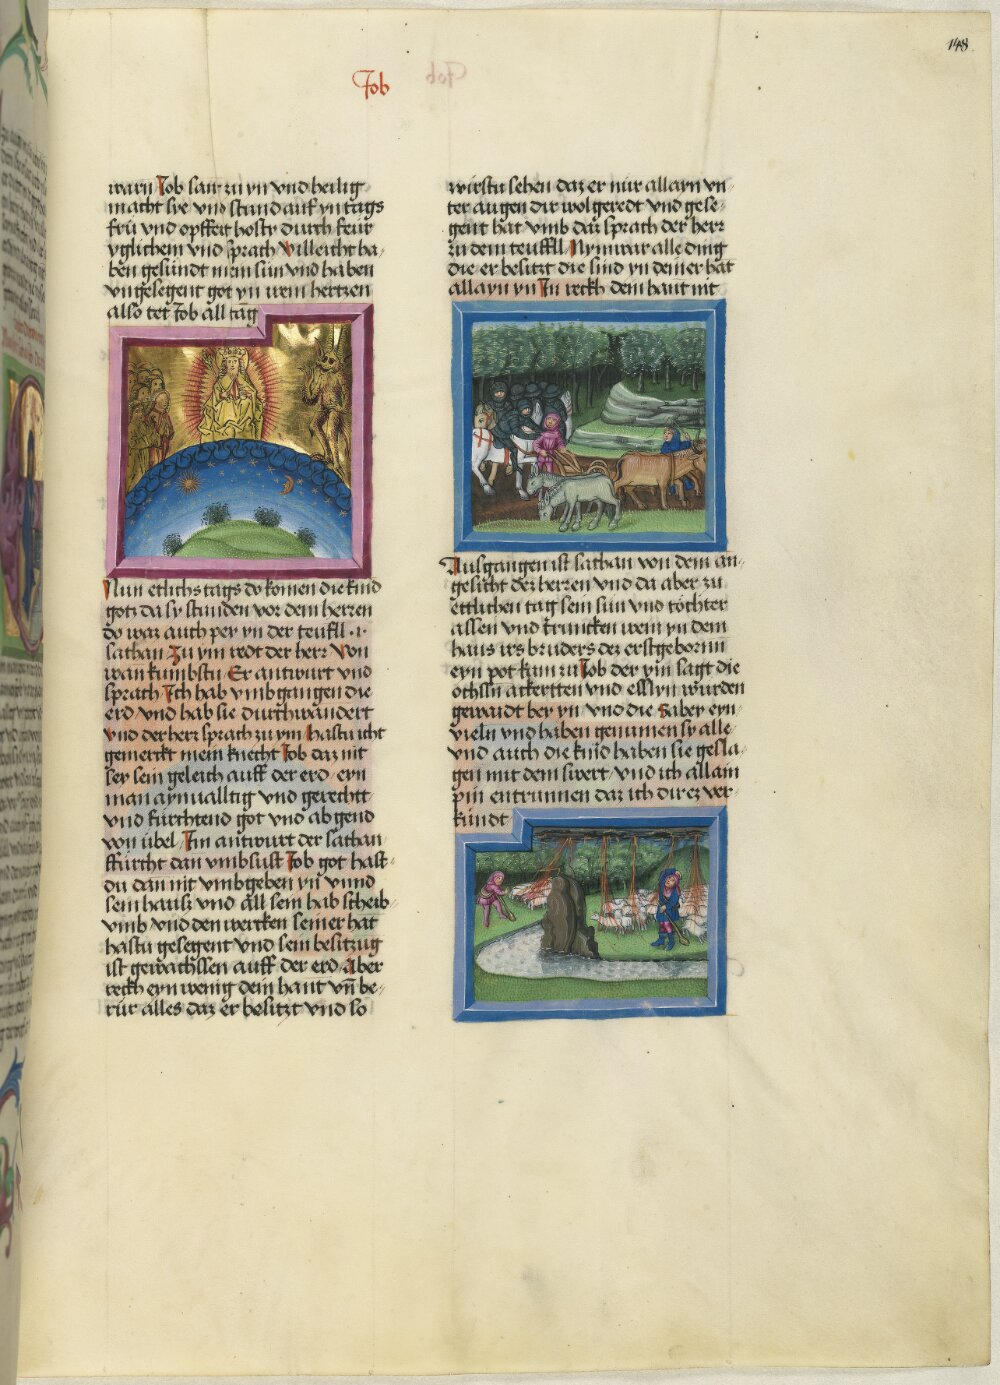 148
Job
warn Job sant zu yn vnd heilig
macht sye vnd stand auf yn tags
frü vnd opffert hosty durch feür
yglichem vnd sprach villeicht ha-
ben gesündt mein sün vnd haben
vngesegent got yn irem hertzen
also tet Job all tag
Nun etlichs tags do komen die kind
gotz da sy stunden vor dem herren
do waz auch pey yn der teufll .1.
sathan Zu ym redt der herr Von
wan kumbstu Er antwurt vnd
sprach Ich hab vmbgangen die
erd vnd hab sie durchwandert
vnd der herr sprach zu yn hastu icht
gemerckt mein knecht Job daz nit
sey sein geleich auff der erd eyn
man aynualltig vnd gerechtt
vnd fürchtend got vnd abgend
von übel Im antwurt der sathan
ffürcht dan vmbsust Job got hast
du dan nit vmbgeben yn vnnd
sein hausz vnd all sein hab scheib-
vmb vnd den wercken seiner hat
hastu gesegent vnd sein besitzug
ist gewachssen auff der erd aber
reckh eyn wenig dein hant vn̄ be-
rür alles daz er besitzt vnd so
wirstu sehen daz er nür allayn vn-
ter augen dir wol geredt vnd gese-
gent hat vmb daz sprach der herr
zu dem teuffll Nym war alle ding
die er besitzt die sind yn deiner hāt
allayn yn In reckh dein hant nit
Ausgangen ist sathan von dem an-
gesicht dez herren vnd da aber zu
ettlichen tag sein sün vnd töchter
assen vnd truncken wein yn dem
haus irs bruders dez erstgeborn
eyn pot kam zu Job der ym sagt die
ochssn ackertten vnd esslyn wurden
gewaidt bey yn vnd die Saber eyn-
vieln vnd haben genumen sy alle
vnd auch die kind haben sie gesla-
gen mit dem swert vnd ich allain
pin entrunnen daz ich dir ez ver-
kündt